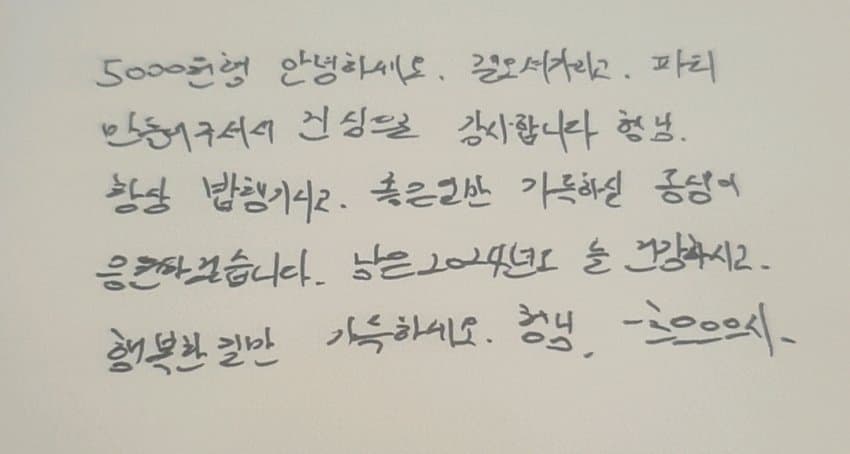 5000원형 안녕하세요. 걸오셔가리고. 파티
만들어주셔서 진심으로 감사합니다 형님.
항상 밥챙기시고. 좋은일만 가득하실 동생이
응원하겠습니다. 남은 2024년도 늘 건강하시고.
행복한 길만 가득하세요. 형님.